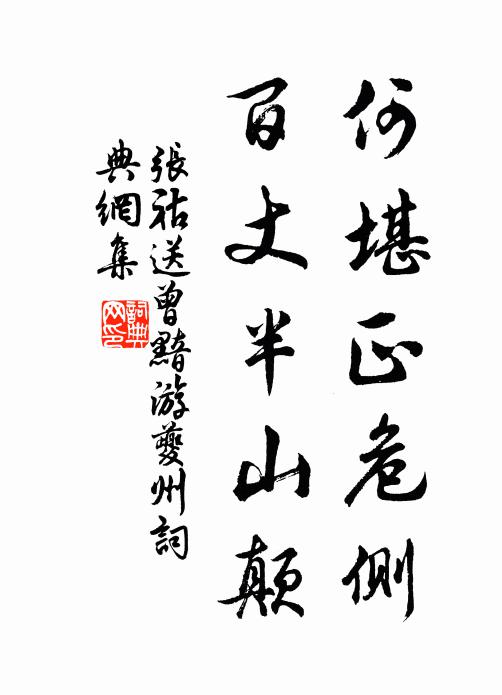 何堪正危側
百丈半山顛
張祜送曾黯游夔州詞
典網集
詞典
网印